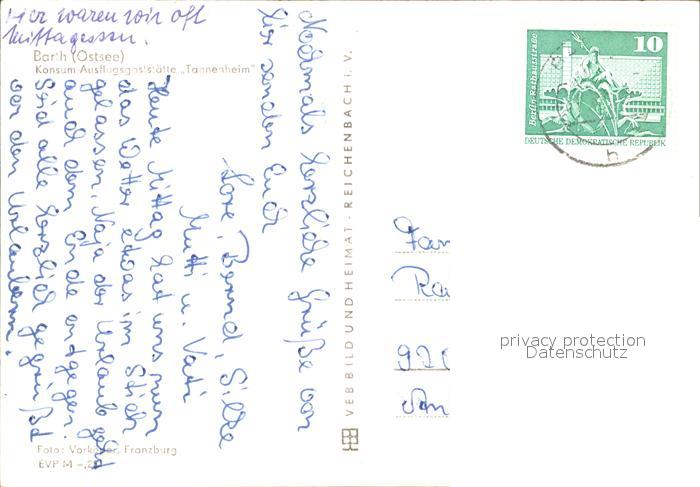 Hier waren wir oft
Mittagessen.
Barth (Ostsee)
Konsum-Ausflugsgaststätte „Tannenheim"
Nochmals herzliche Grüße von
hier senden Euch
Lore, Bernd, Silke
Mutti u. Vati
Heute Mittag hat uns nun
das Wetter etwas im Stich
gelassen. Naja der Urlaub geht
auch dem Ende entgegen.
Seid alle herzlich gegrüßt
von den Urlaubern.
Foto: Franzburg
EVP M -,2
VEB BILD UND HEIMAT · REICHENBACH I. V.
10
Berlin-Rathausstraße
DEUTSCHE DEMOKRATISCHE REPUBLIK
h
Fam
Ra
920
An
privacy protection
Datenschutz